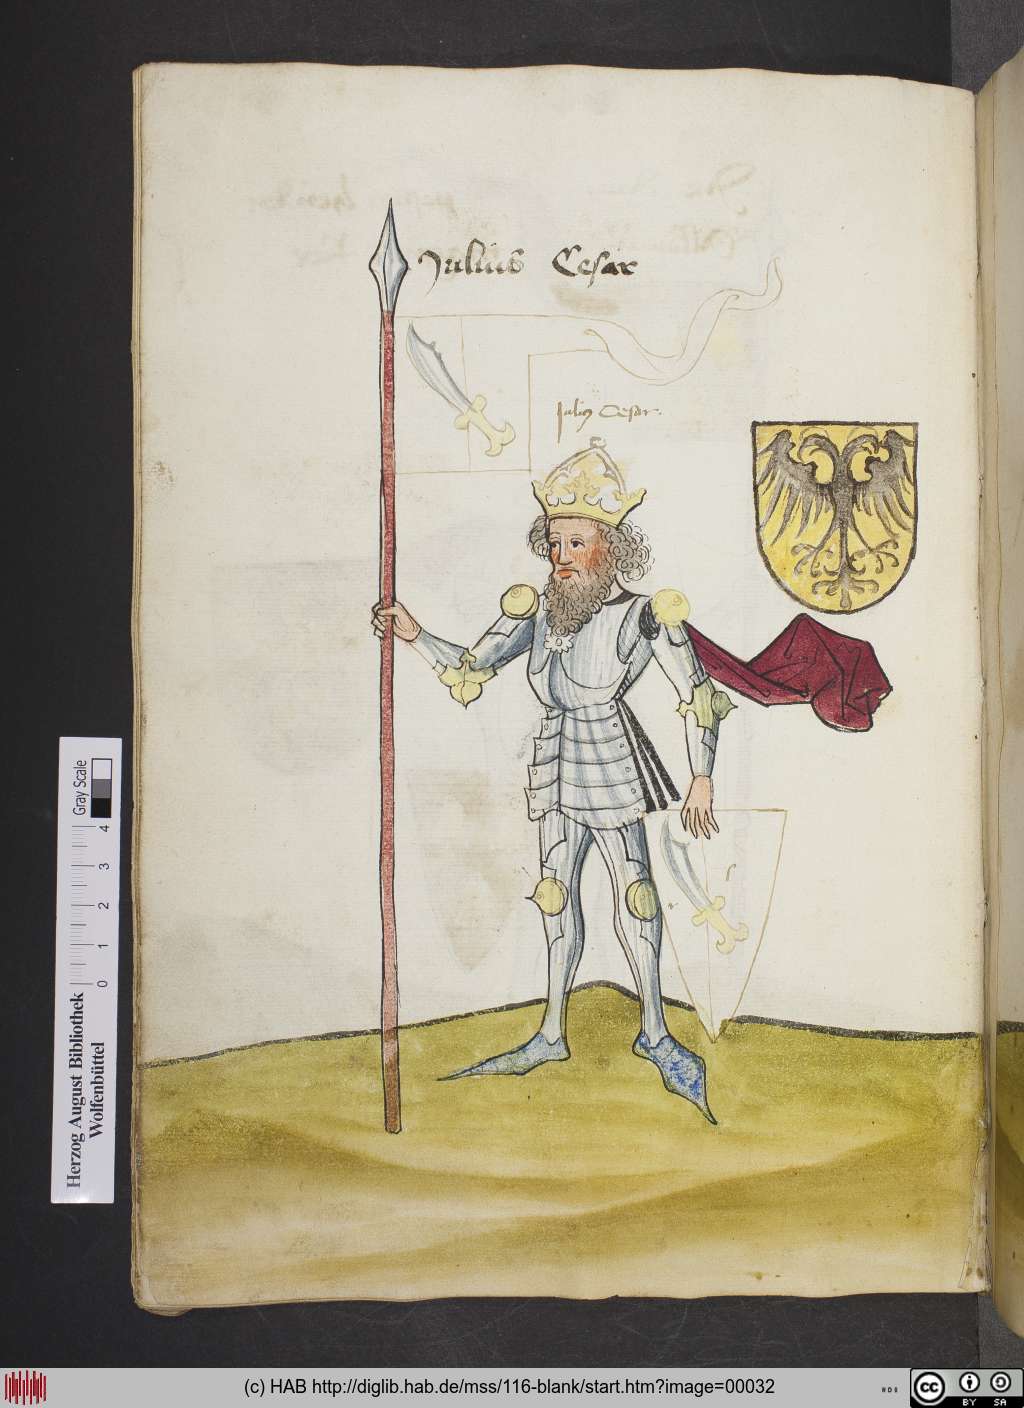 Julius Cesar
Julius Cesar.
Gray Scale
0 1 2 3 4
Herzog August Bibliothek
Wolfenbüttel
(c) HAB http://diglib.hab.de/mss/116-blank/start.htm?image=00032
cc BY SA